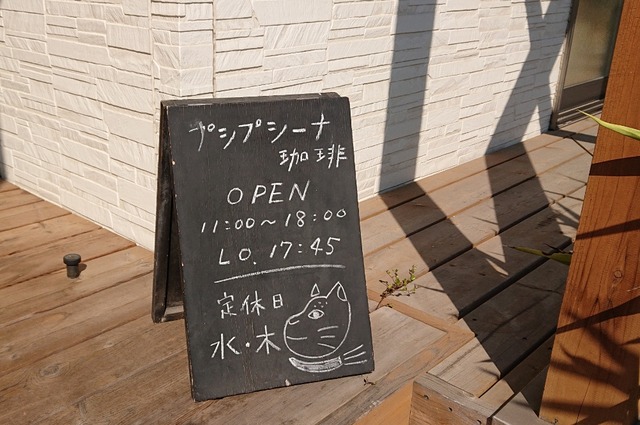 プシプシーナ
珈琲
OPEN
11:00〜18:00
LO. 17:45
定休日
水・木